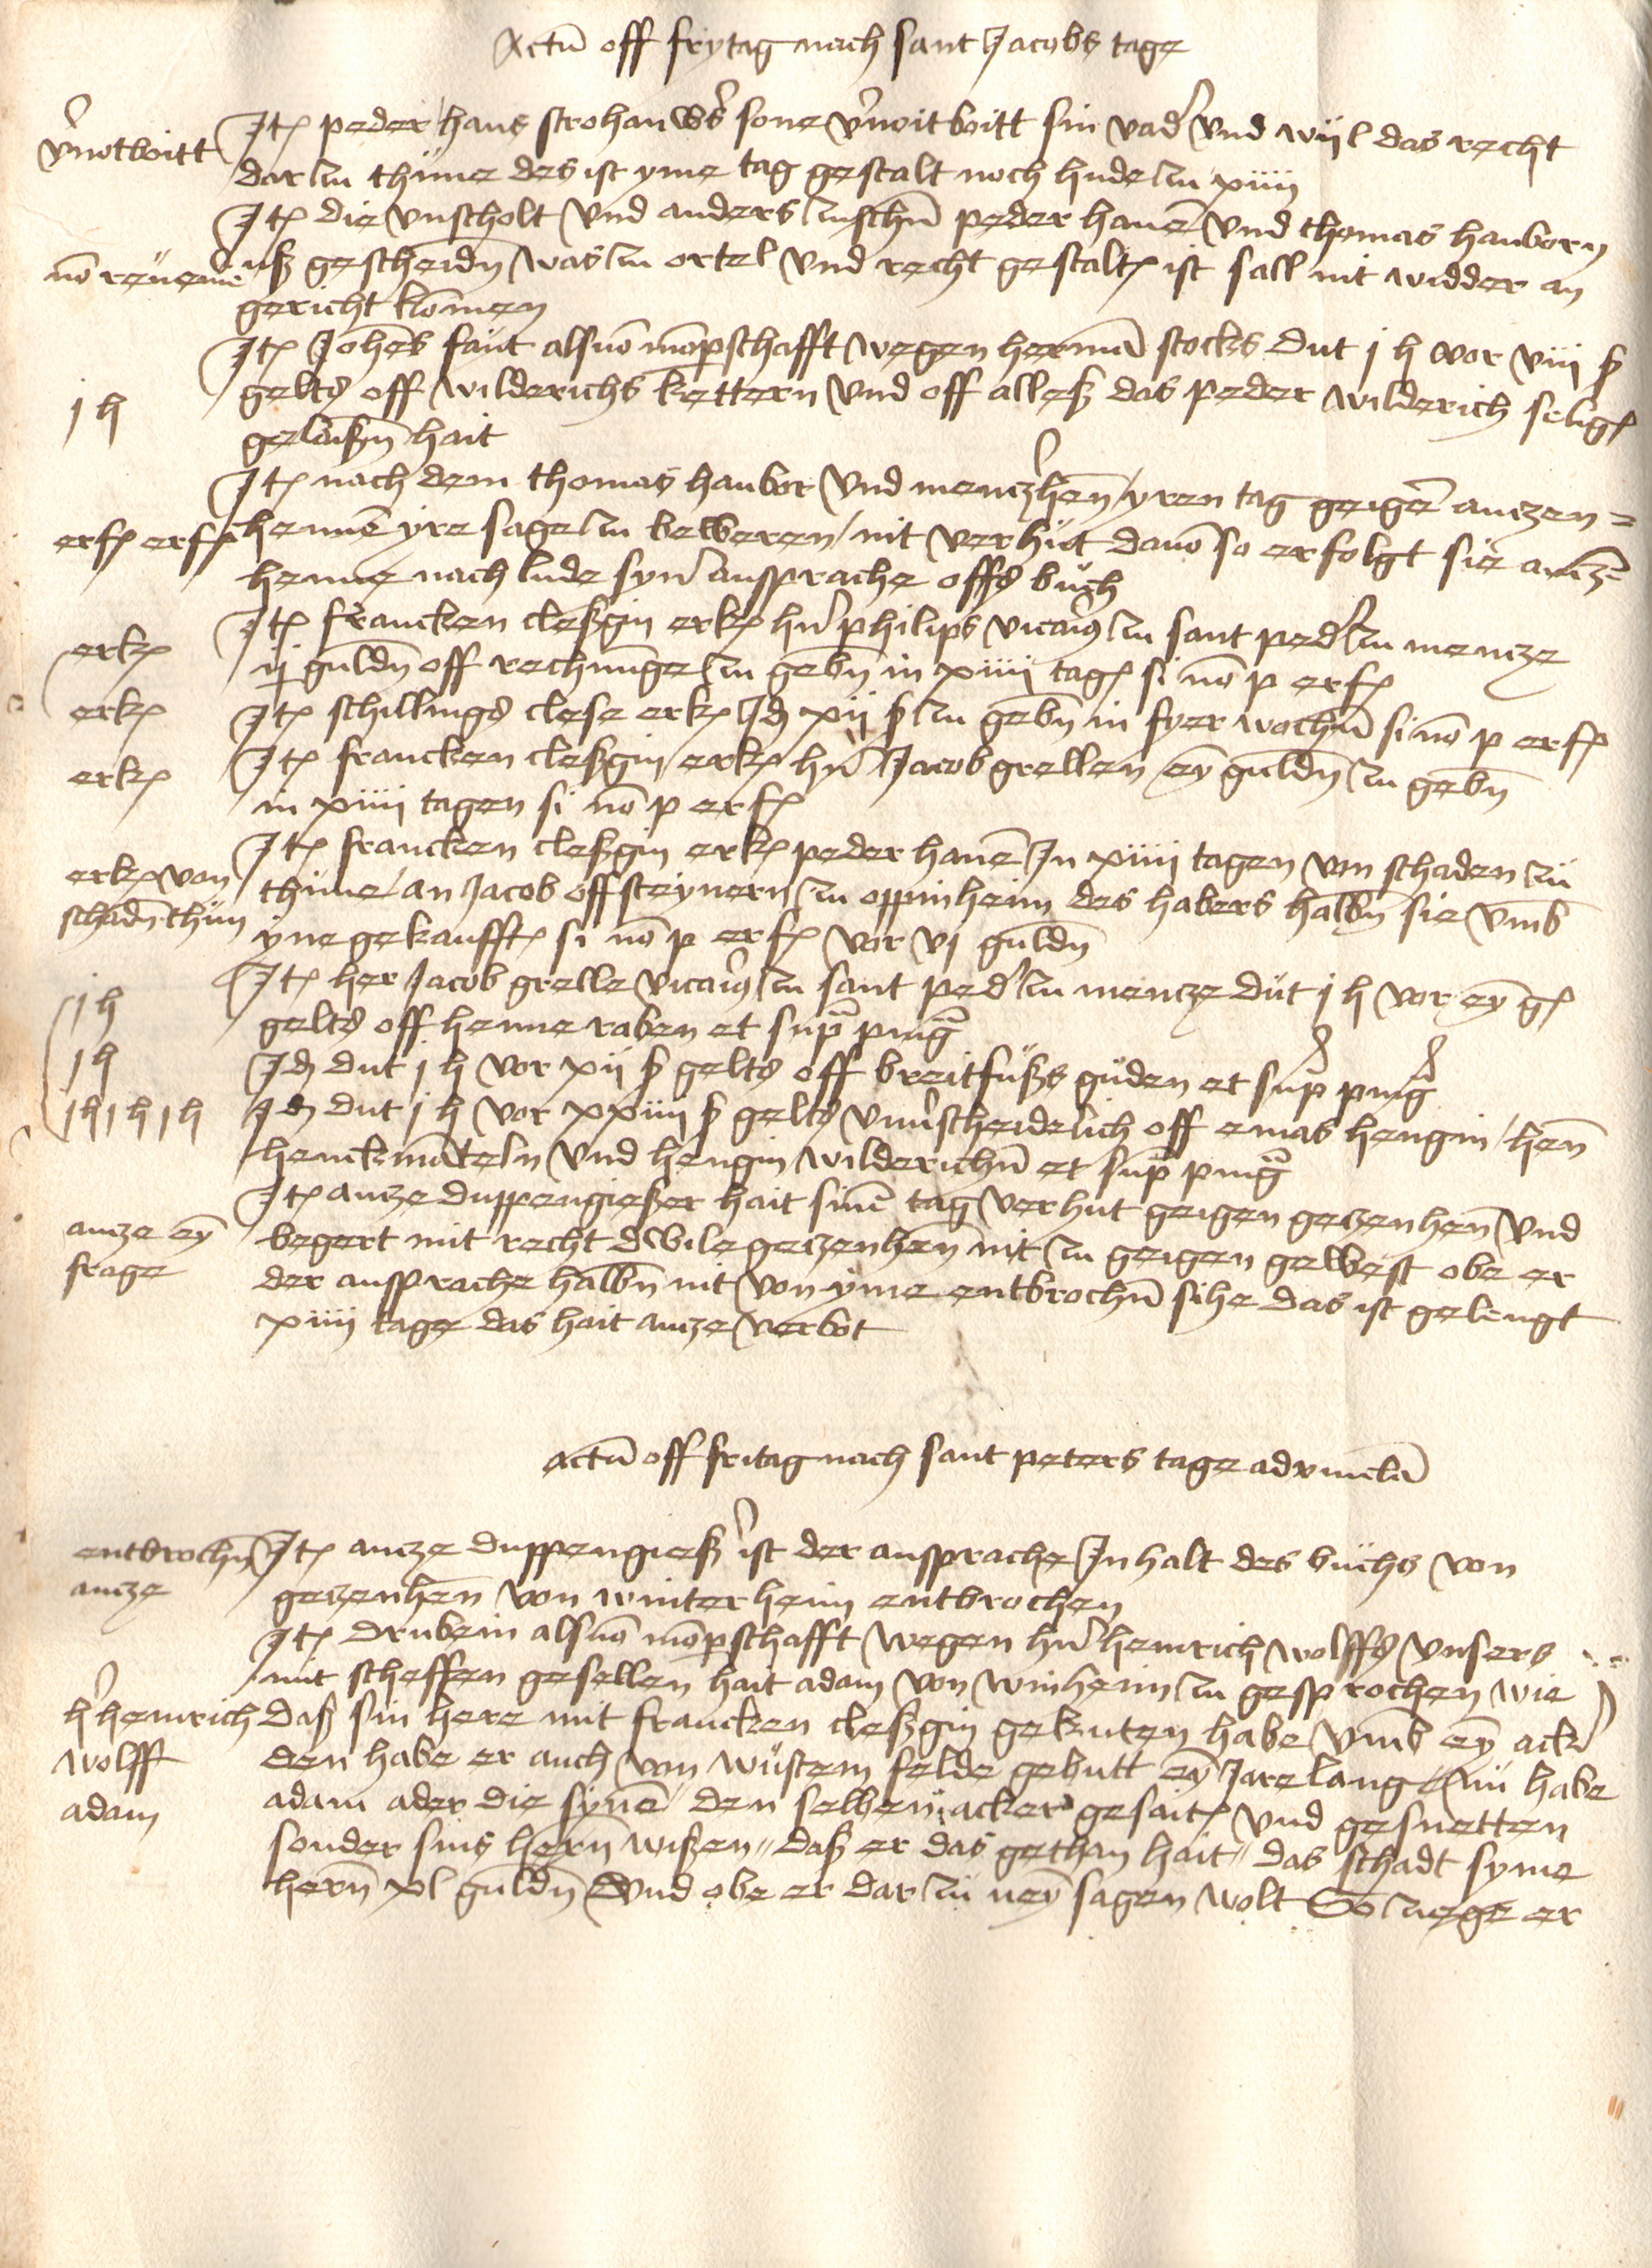 Actu͠ off frytag nach sant Jacobs tage
v͛notboitt
Jt͛ peder hans strohauw͛s sone v͛noitboitt sin vad͛ vnd wyl das recht
dar zu thüme des ist yme tag gestalt noch hude zu xiiii
Jt͛ die vnscholt vnd anders zuschn͠ peder hane͠ vnd thomas hauborn
no͠
vß gescheidn͠ was zu ortel vnd recht gestalt͛ ist sall nit widder an
gericht kome͠n
Jt͛ Johe͠s faut als vo͠ mo͠pschafft wegen herma͠ stocks dut j h vor viii ß
j h
gelts off wilderichs kettern vnd off alleß das peder wilderich selig͛
gelaißn͠ hait
Jt͛ nach dem thomas haubor vnd mencz͛hen͠ yren tag geige͠ anczen=
erf͛ erf͛
henne͠ yre sage zu beweren nit verhut davo͠ so erfolgt sie ancz=
henne nach lude syn͛ ansprache offs buch
erk͛
Jt͛ francken cleßgin erk͛ hn͛ philips vicari9 zu sant ped͛ zu mencze
ij guldn͠ off rechnu͠ge zu gebn͠ in xiiii tag͛ si no͠ p erf͛
erk͛
Jt͛ schillings clese erk͛ Jd͛ xij ß zu gebn͠ in fyer wochn͠ si no͠ p erf͛
erk͛
Jt͛ francken cleßgin erk͛ hn͛ Jacob grellen ey͠ guldn͠ zu gebn͠
in xiiii tagen si no͠ p erf͛
erk͛ von
schadn͠ thün
Jt͛ francken cleßgin erk͛ peder hane͠ Jn xiiii tagen von schaden zu
thüme an Jacob offsteynern zu oppinheim des habers halbn͠ sie vmb
yne gekaufft͛ si no͠ p erf͛ vor vj guldn͠
j h
Jt͛ her Jacob grelle vicari9 zu sant ped͛ zu mencze dut j h vor ey͠ g͛
gelts off henne raben et sup͠ ping͠
j h
Jd͛ dut j h vor xij ß gelts off breitfußs guden et sup͠ ping͠
j h j h j h
Jd͛ dut j h vor xxiiii ß gelts vnu͛scheidelich off emas hengin hen͠
henckma͠teln vnd hengin wilderichn͠ et sup͠ ping͠
ancze ey͠
frage
Jt͛ ancze duppengießer hait sine͠ tag verhut geigen geczenhen͠ vnd
begert mit recht dwile geczenhen͠ nit zu geigen gewest obe er
der ansprache halbn͠ nit von yme entbrochn͠ sihe das ist gelengt
xiiii tage das hait ancze verbot
Actu͠ off fritag nach sant peters tage advincla͠
entbrochn͠
ancze
Jt͛ ancze duppengieß͛ ist der ansprache Jnhalt des buchs von
geczenhen͠ von winterheim entbrochen
Jt͛ drubein als vo͠ mo͠pschafft wegen hn͛ heinrich wolffs vnsers
mit scheffen gesellen hait adam von winheim zu gesprochen wie
h͛ heinrich
wolff
adam
daß sin here mit francken cleßgin gekuten habe vmb ey͠ ack͛
den habe er auch von wustem felde gebutt ey͠ Jare lang nü habe
adam ader die syne͠ den selben acker gesait͛ vnd gesnetten
sonder sins hern͠ wißen daß er das gethan hait das schadt syme
hern͠ xl guldn͠ vnd obe er dar zu ney͠ sagen wolt So zuege er